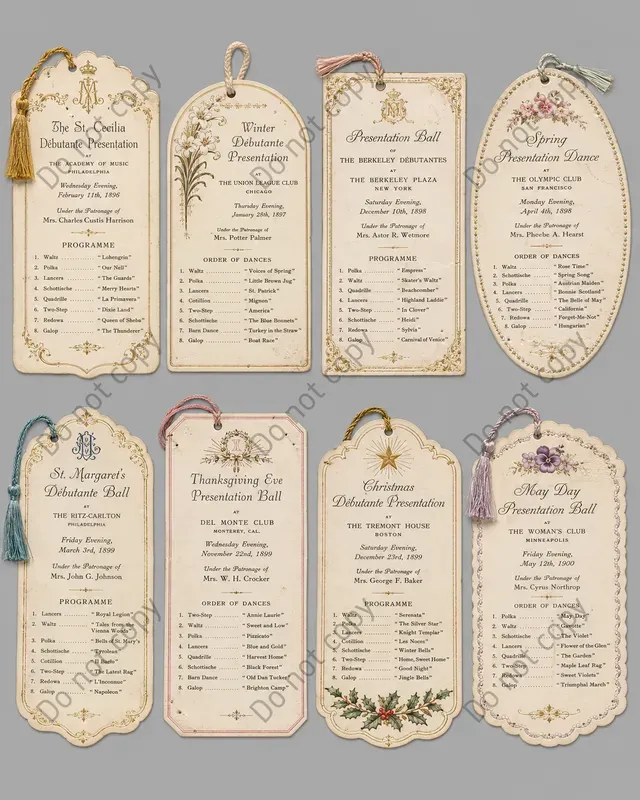 The St. Cecilia
Débutante Presentation
AT
THE ACADEMY OF MUSIC
PHILADELPHIA
Wednesday Evening,
February 11th, 1896
Under the Patronage of
Mrs. Charles Custis Harrison
PROGRAMME
1. Waltz "Lohengrin"
2. Polka "Our Nell"
3. Lancers "The Guards"
4. Schottische "Merry Hearts"
5. Quadrille "La Primavera"
6. Two-Step "Dixie Land"
7. Redowa "Queen of Sheba"
8. Galop "The Thunderer"
Winter
Débutante
Presentation
AT
THE UNION LEAGUE CLUB
CHICAGO
Thursday Evening,
January 28th, 1897
Under the Patronage of
Mrs. Potter Palmer
ORDER OF DANCES
1. Waltz "Voices of Spring"
2. Polka "Little Brown Jug"
3. Lancers "St. Patrick"
4. Cotillion "Mignon"
5. Two-Step "America"
6. Schottische "The Blue Bonnets"
7. Barn Dance "Turkey in the Straw"
8. Galop "Boat Race"
Presentation Ball
OF
THE BERKELEY DÉBUTANTES
AT
THE BERKELEY PLAZA
NEW YORK
Saturday Evening,
December 10th, 1898
Under the Patronage of
Mrs. Astor R. Wetmore
PROGRAMME
1. Polka "Empress"
2. Waltz "Skater's Waltz"
3. Quadrille "Beachcomber"
4. Lancers "Highland Laddie"
5. Two-Step "In Clover"
6. Schottische "Heidi"
7. Redowa "Sylvia"
8. Galop "Carnival of Venice"
Spring
Presentation Dance
AT
THE OLYMPIC CLUB
SAN FRANCISCO
Monday Evening,
April 4th, 1898
Under the Patronage of
Mrs. Phoebe A. Hearst
ORDER OF DANCES
1. Waltz "Rose Time"
2. Schottische "Spring Song"
3. Polka "Austrian Maiden"
4. Lancers "Bonnie Scotland"
5. Quadrille "The Bells of May"
6. Two-Step "California"
7. Redowa "Forget-Me-Not"
8. Galop "Hungarian"
St. Margaret's
Débutante Ball
AT
THE RITZ-CARLTON
PHILADELPHIA
Friday Evening,
March 3rd, 1899
Under the Patronage of
Mrs. John G. Johnson
PROGRAMME
1. Lancers "Royal Legion"
2. Waltz "Tales from the
Vienna Woods"
3. Polka "Bells of St. Mary's"
4. Schottische
5. Cotillion
6. Two-Step "The Latest Rag"
7. Redowa "L'Inconnue"
8. Galop "Napoleon"
Thanksgiving Eve
Presentation Ball
AT
DEL MONTE CLUB
MONTEREY, CAL.
Wednesday Evening,
November 22nd, 1899
Under the Patronage of
Mrs. W. H. Crocker
ORDER OF DANCES
1. Two-Step "Annie Laurie"
2. Waltz "Sweet and Low"
3. Polka "Pizzicato"
4. Lancers "Blue and Gold"
5. Quadrille "Harvest Home"
6. Schottische "Black Forest"
7. Barn Dance "Old Dan Tucker"
8. Galop "Brighton Camp"
Christmas
Débutante Presentation
AT
THE TREMONT HOUSE
BOSTON
Saturday Evening,
December 23rd, 1899
Under the Patronage of
Mrs. George F. Baker
PROGRAMME
1. Waltz "Serenata"
2. Polka "The Silver Star"
3. Lancers "Knights Templar"
4. Cotillion "Les Noces"
5. Schottische "Winter Bells"
6. Two-Step "Home, Sweet Home"
7. Redowa "Good Night"
8. Galop "Jingle Bells"
May Day
Presentation Ball
AT
THE WOMAN'S CLUB
MINNEAPOLIS
Friday Evening,
May 12th, 1900
Under the Patronage of
Mrs. Cyrus Northrop
ORDER OF DANCES
1. Polka "May Day"
2. Waltz "Gavotte"
3. Schottische "The Violet"
4. Lancers "Flower of the Glen"
5. Quadrille "The Garden"
6. Two-Step "Maple Leaf Rag"
7. Redowa "Sweet Violets"
8. Galop "Triumphal March"
Do not copy
Do not copy
Do not copy
Do not copy
Do not copy
Do not copy
Do not copy
Do not copy
Do not copy
Do not copy
Do not copy
Do not copy